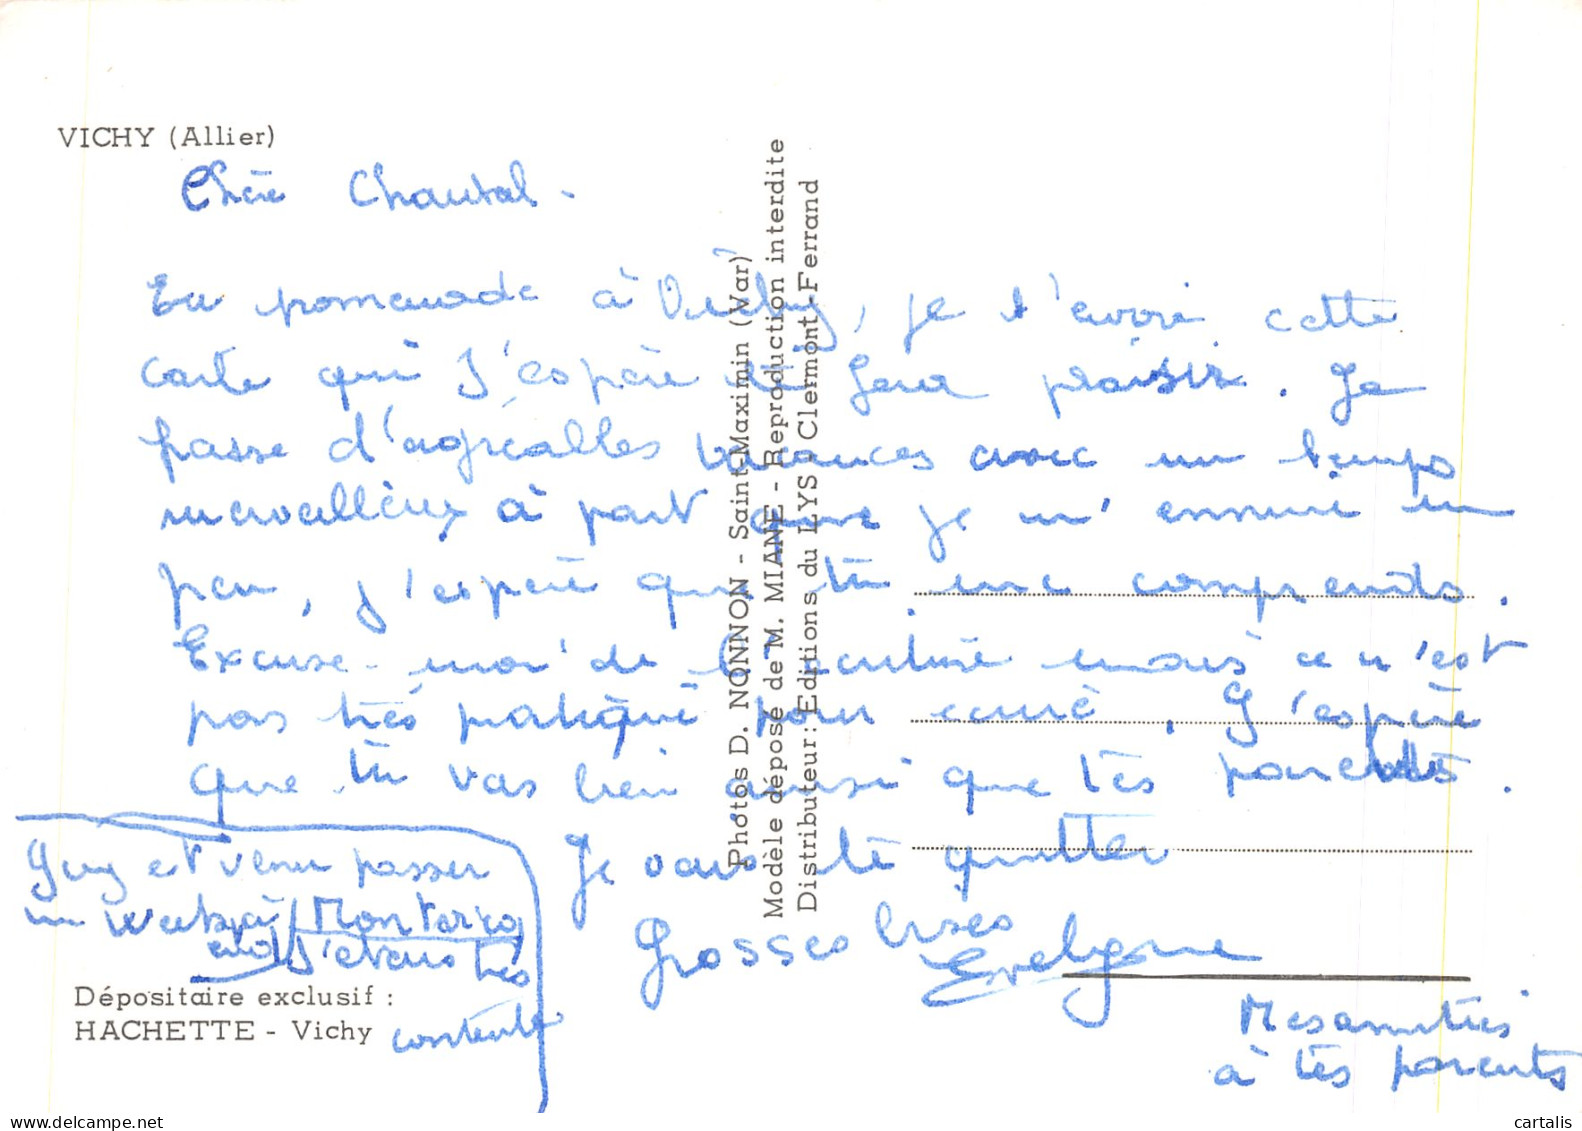 VICHY (Allier)
Chère Chantal -
En promenade à Vichy, je t'envoie cette
carte qui J'espère te fera plaisir. Je
passe d'agréables vacances avec un temps
merveilleux à part que je m'ennuie un
peu, j'espère que tu me comprends.
Excuse-moi de l'écriture mais ce n'est
pas très pratique pour écrire. J'espère
que tu vas bien ainsi que tes parents.
Je vais te quitter
Grosses bises
Evelyne
Mes amitiés
à tes parents
Guy est venu passer
un Week à
end J'étais très
contente
Dépositaire exclusif :
HACHETTE - Vichy
Photos D. NONNON - Saint-Maximin (Var)
Modèle déposé de M. MIANE - Reproduction interdite
Distributeur: Editions du LYS - Clermont-Ferrand
cartalis